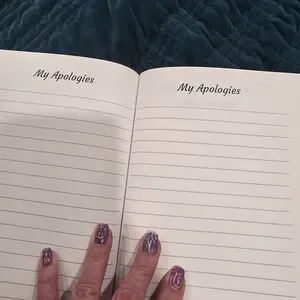 My Apologies
My Apologies